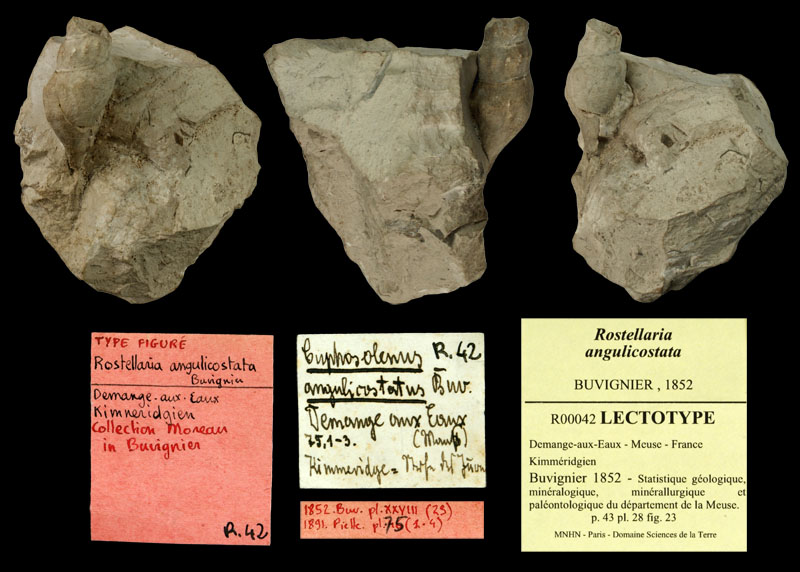 TYPE FIGURÉ
Rostellaria angulicostata
Buvignier
Demange-aux-Eaux
Kimmeridgien
Collection Moreau
in Buvignier
R.42
Cuphosolenus R.42
angulicostatus Buv.
Demange aux Eaux
75,1-3.
Kimmeridge =
1852. Buv. pl. XXVIII (23)
1891. Piette. pl. 75 (1-4)
Rostellaria
angulicostata
BUVIGNIER , 1852
R00042 LECTOTYPE
Demange-aux-Eaux - Meuse - France
Kimméridgien
Buvignier 1852 - Statistique géologique,
minéralogique, minérallurgique et
paléontologique du département de la Meuse.
p. 43 pl. 28 fig. 23
MNHN - Paris - Domaine Sciences de la Terre